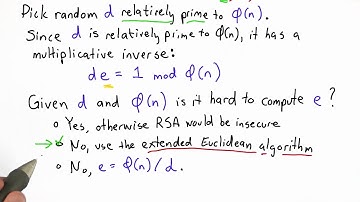 Pick random d relatively prime to φ(n).
Since d is relatively prime to φ(n), it has a
multiplicative inverse:
de = 1 mod φ(n)
Given d and φ(n) is it hard to compute e ?
o Yes, otherwise RSA would be insecure
o No, use the extended Euclidean algorithm
o No, e = φ(n)/d.